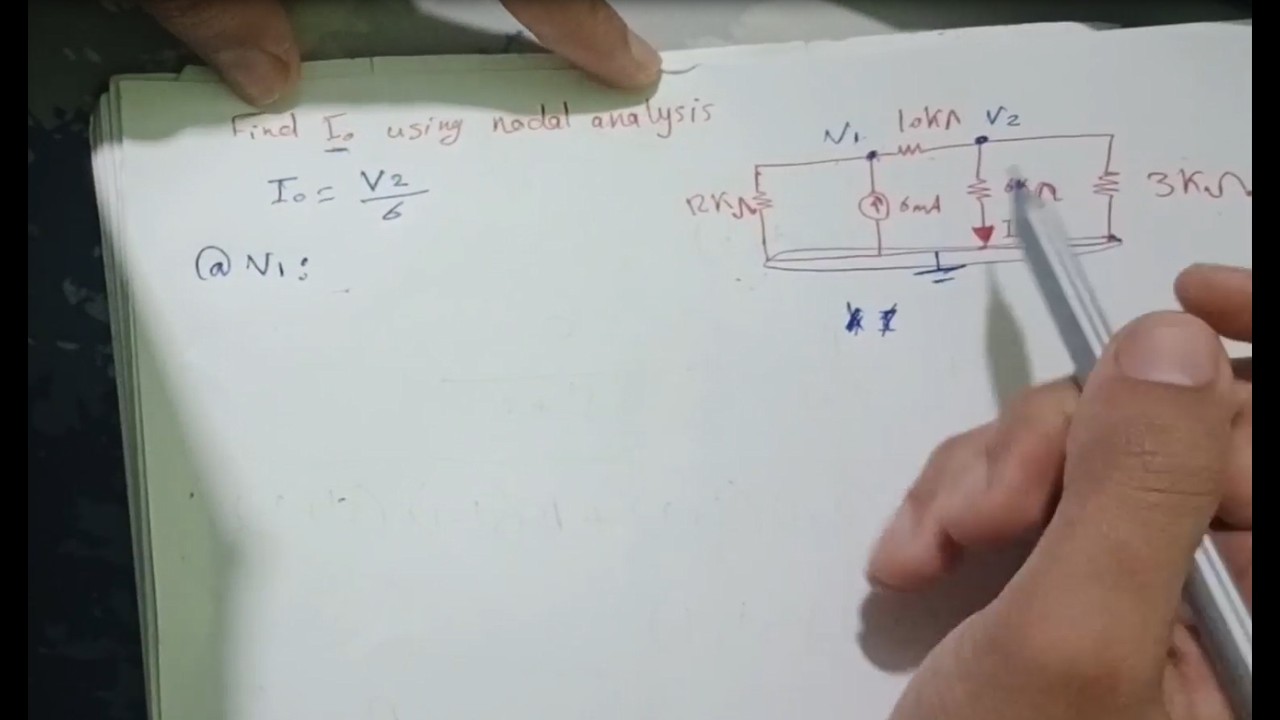 Find I₀ using nodal analysis
I₀ = V2/6
@ V₁:
V₁
10KΩ
V2
12KΩ
6mA
6KΩ
3KΩ
I